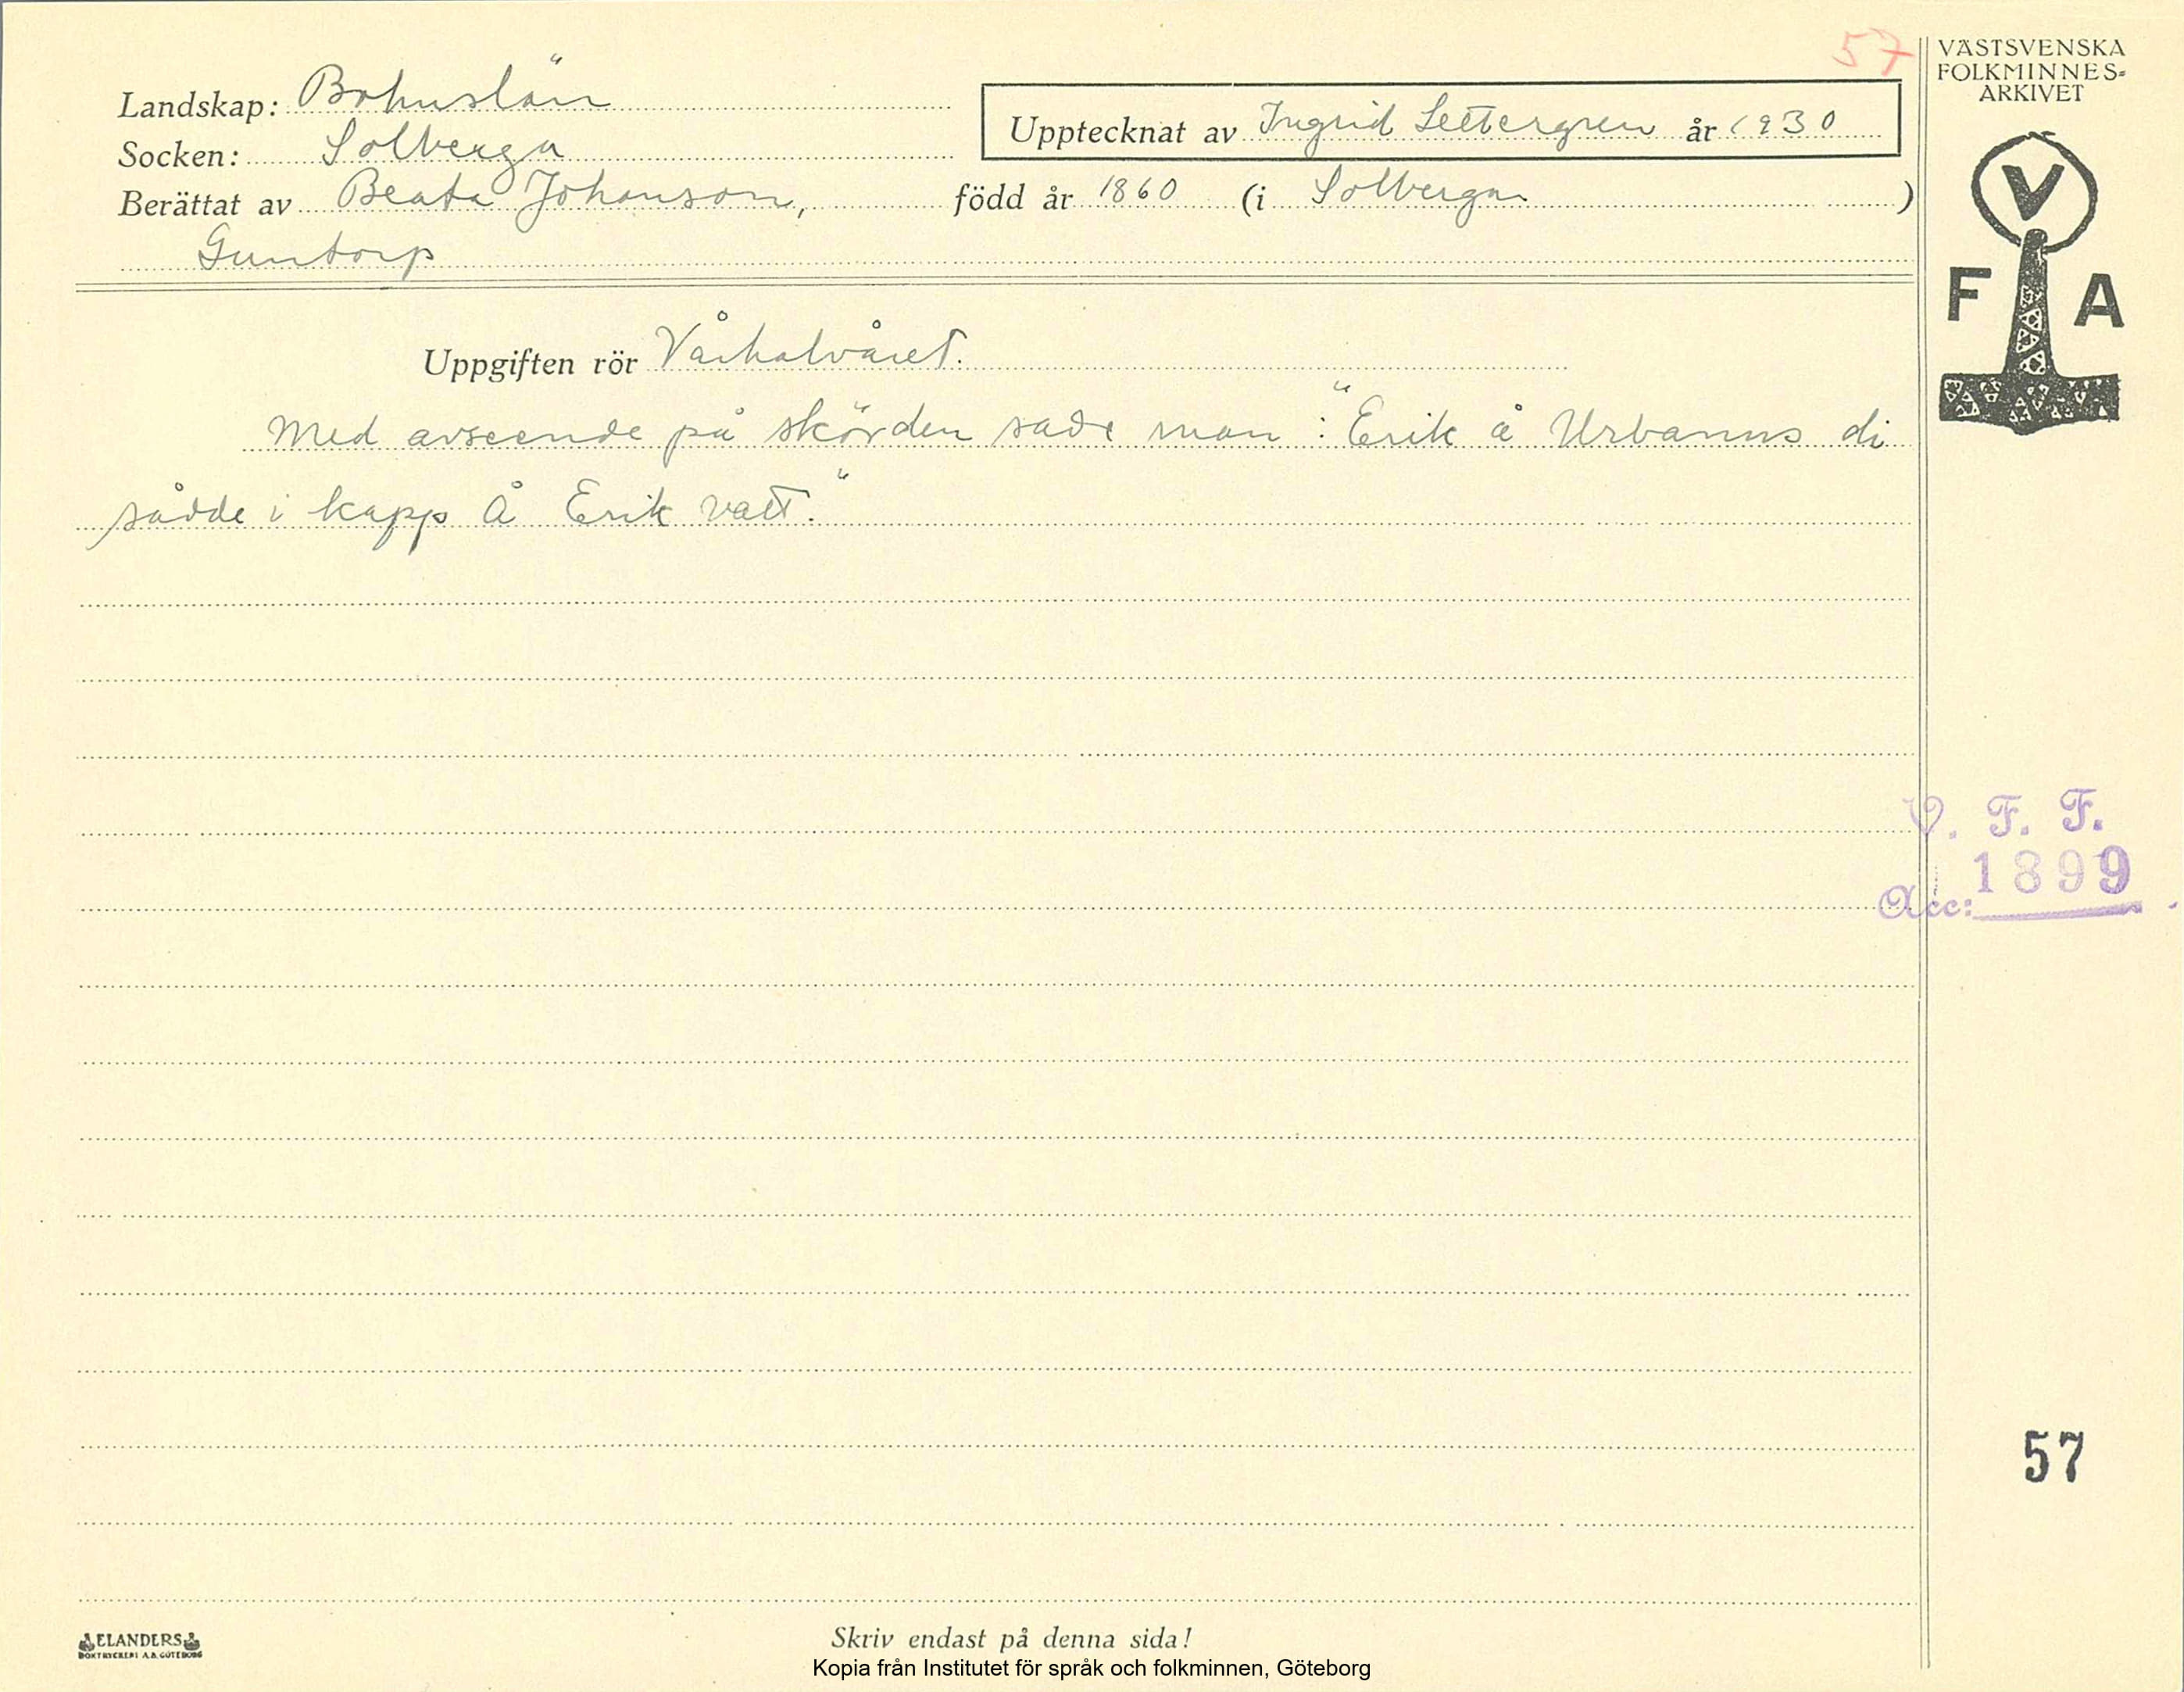 57
VÄSTSVENSKA
FOLKMINNES-
ARKIVET
Landskap: Bohuslän
Upptecknat av Ingrid Settergren år 1930
Socken: Solberga
Berättat av Beata Johanson, född år 1860 (i Solberga )
Guntorp
V
F A
Uppgiften rör Vårhalvåret.
Med avseende på skörden sade man: "Erik å Urbanus di
sådde i kapp å Erik vatt."
V. F. F.
1899
Acc:
57
ELANDERS
BOKTRYCKERI A.B. GÖTEBORG
Skriv endast på denna sida!
Kopia från Institutet för språk och folkminnen, Göteborg